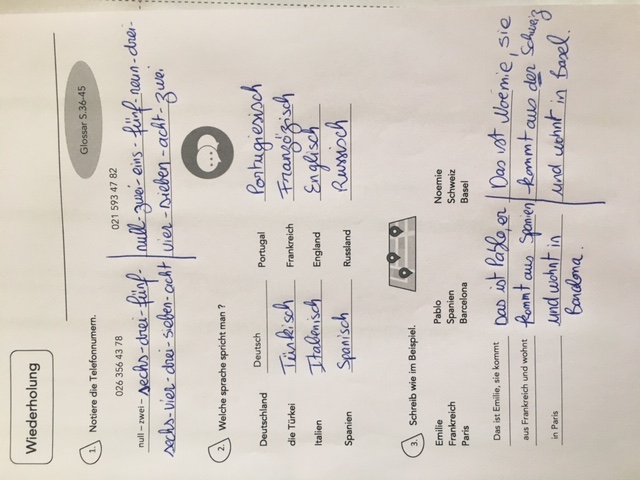 Wiederholung
Glossar S.36-45
1. Notiere die Telefonnumern.
026 356 43 78
021 593 47 82
null – zwei – sechs-drei-fünf-
sechs-vier-drei-sieben-acht
null-zwei-eins-fünf-neun-drei-
vier-sieben-acht-zwei
2. Welche sprache spricht man ?
Deutschland Deutsch Portugal Portugiesisch
die Türkei Türkisch Frankreich Französisch
Italien Italenisch England Englisch
Spanien Spanisch Russland Russisch
3. Schreib wie im Beispiel.
Emilie Pablo Noemie
Frankreich Spanien Schweiz
Paris Barcelona Basel
Das ist Emilie, sie kommt
aus Frankreich und wohnt
in Paris
Das ist Pablo, er
kommt aus Spanien
und wohnt in
Barcelona.
Das ist Noémie, sie
kommt aus der Schweiz
und wohnt in Basel.